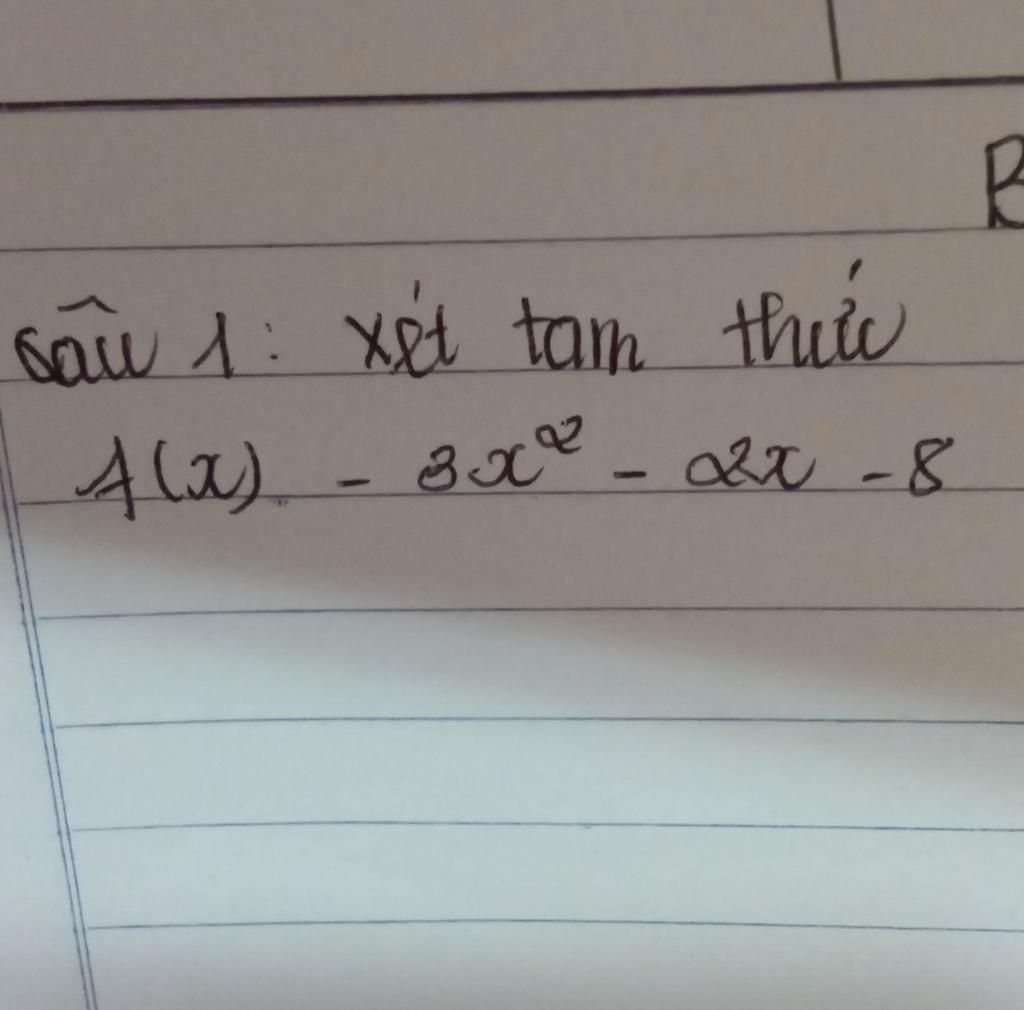 B
Câu 1: xét tam thức
f(x) - 3x² - 2x - 8